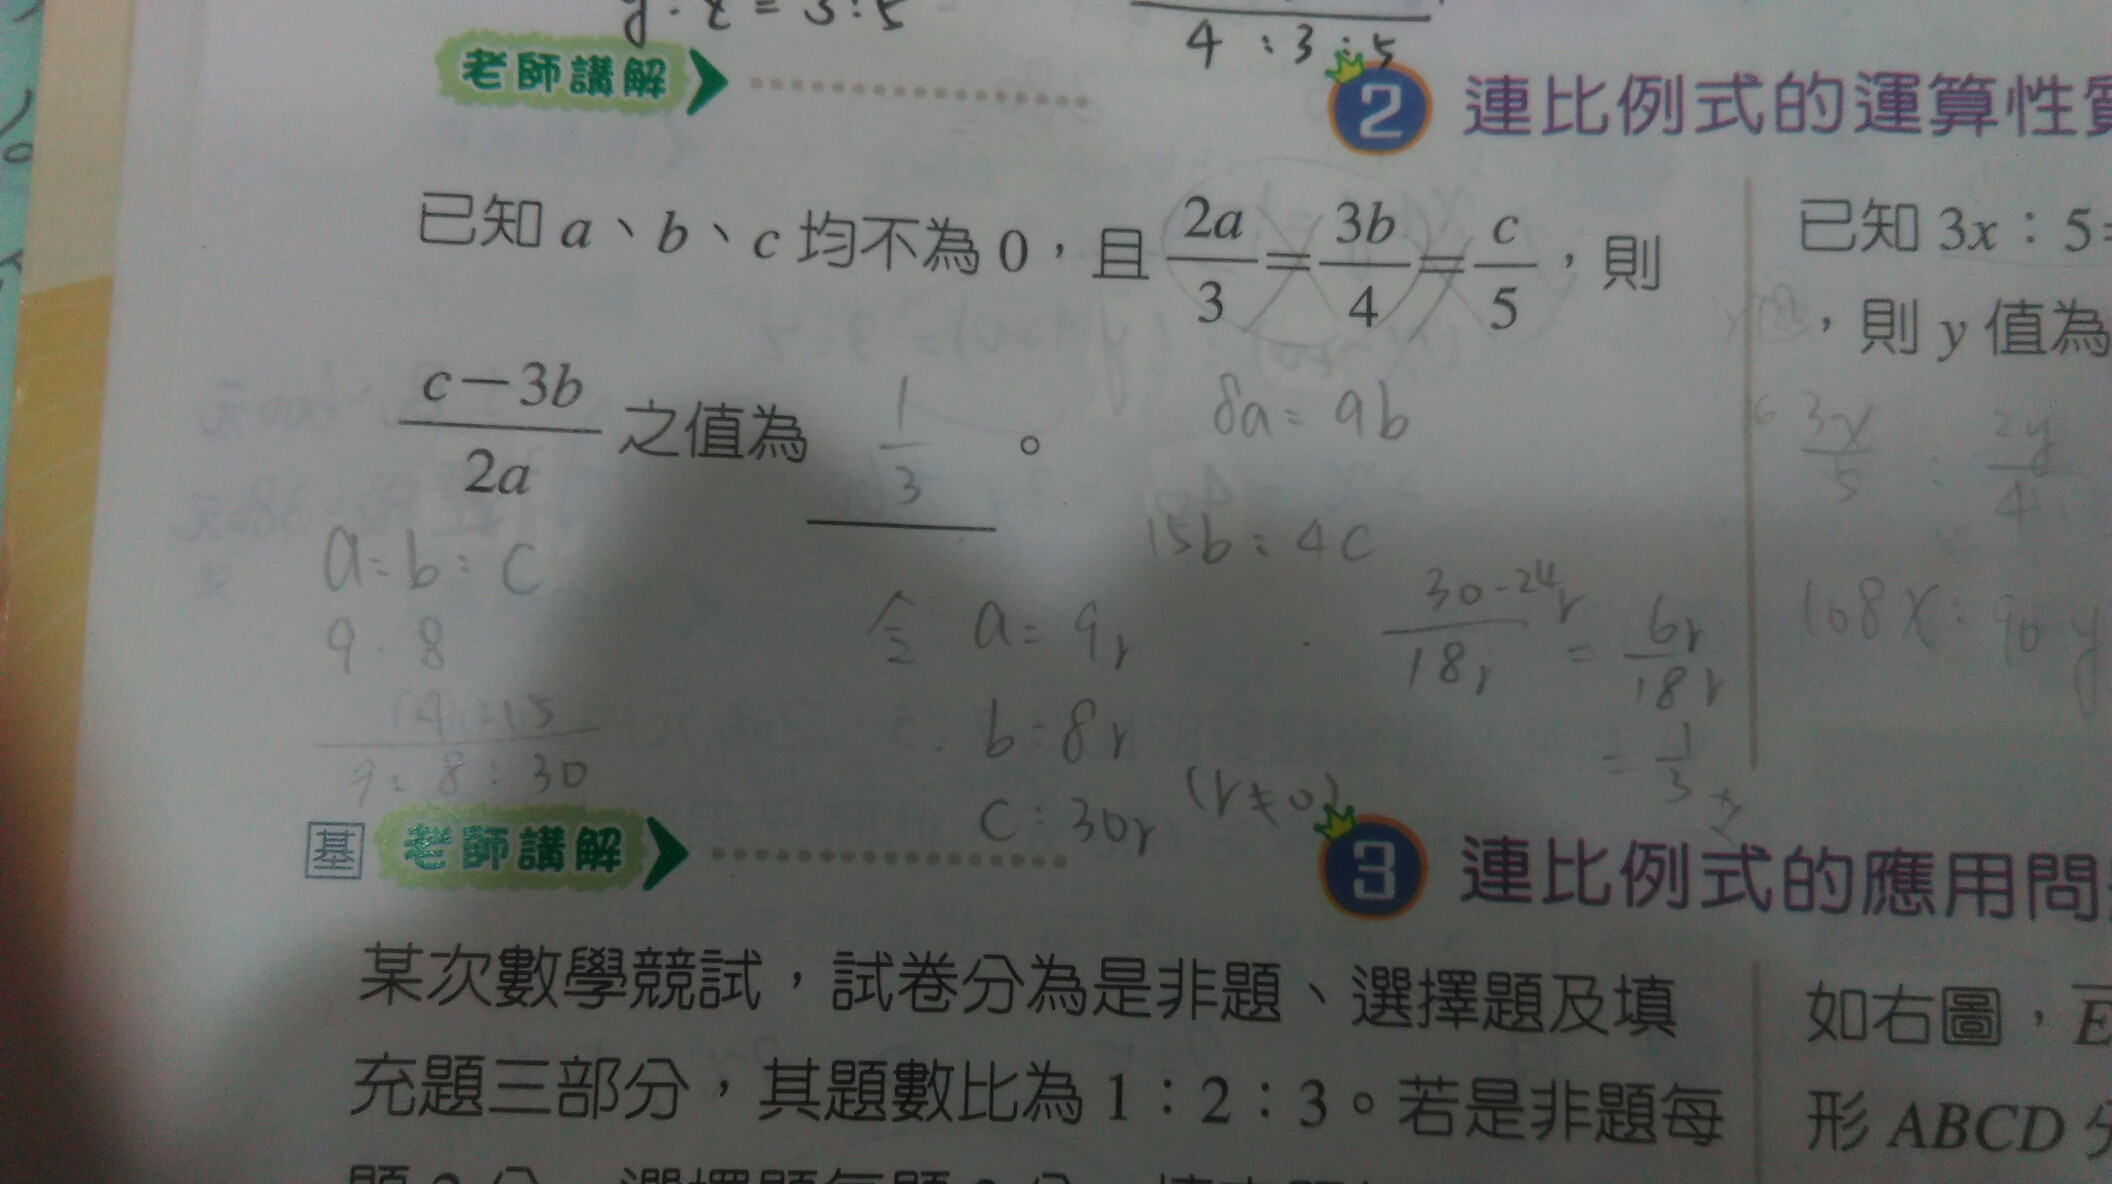 y:z=3:5
4:3:5
老師講解
2 連比例式的運算性質
已知 a、b、c 均不為 0,且 2a/3=3b/4=c/5,則
c-3b/2a 之值為 1/3 。
8a=9b
15b=4c
a:b:c
9:8
4:15
9:8:30
令 a=9r
b=8r
c=30r (r≠0)
30-24r/18r = 6r/18r
= 1/3
已知 3x:5=
,則 y 值為
3x/5 = 2y/4
108x=90y
基 老師講解
3 連比例式的應用問
某次數學競試,試卷分為是非題、選擇題及填
充題三部分,其題數比為 1:2:3。若是非題每
如右圖,E
形 ABCD 分